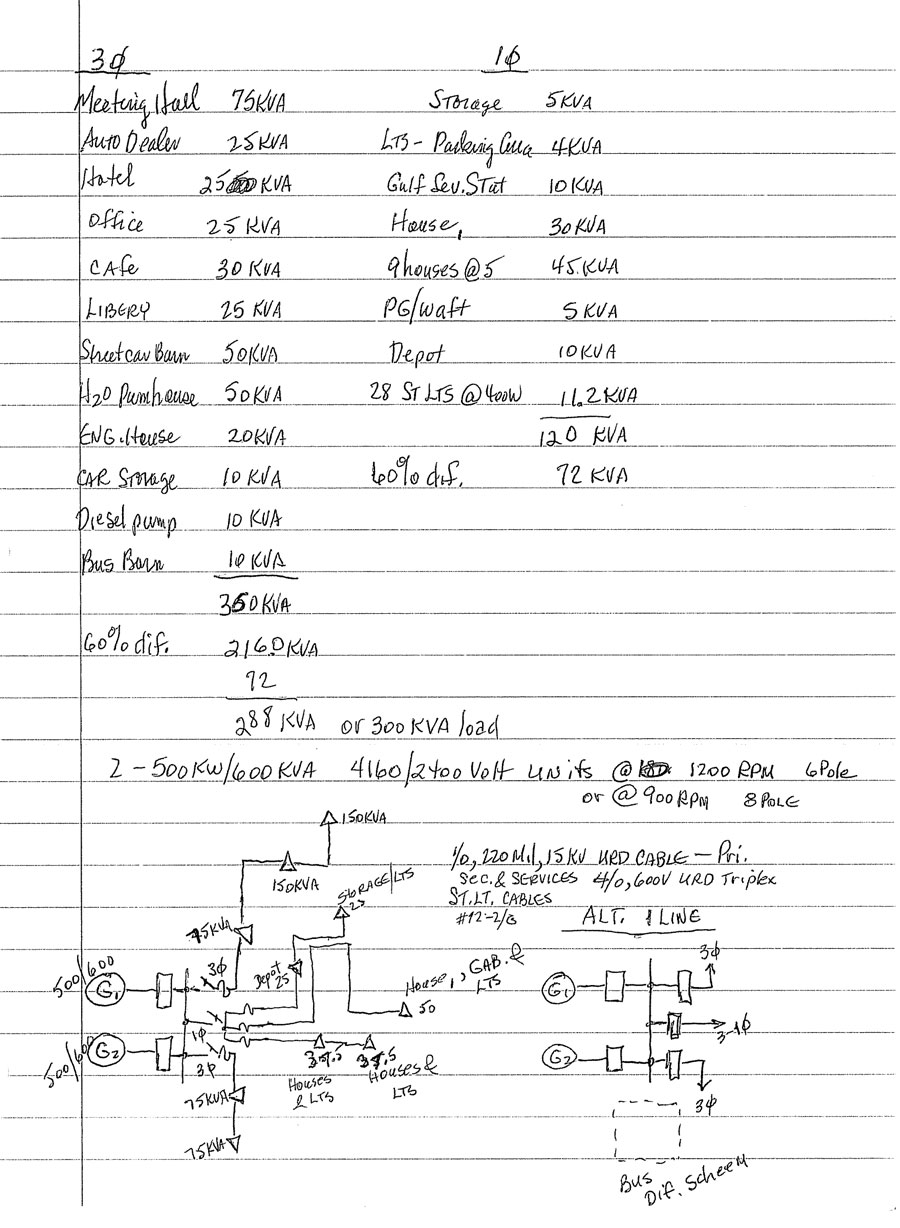 3ϕ 1ϕ
Meeting Hall 75KVA Storage 5KVA
Auto Dealer 25KVA LTS - Parking Area 4KVA
Hotel 25 KVA Gulf Sev. Stat 10KVA
Office 25 KVA House, 30KVA
CAfe 30 KVA 9 houses @ 5 45.KVA
LIBERY 25 KVA PG/waft 5KVA
Streetcar Barn 50KVA Depot 10KVA
H2O Pumhouse 50KVA 28 ST LTS @ 400W 11.2 KVA
ENG. House 20KVA 120 KVA
CAR Storage 10 KVA 60% dif. 72 KVA
Diesel pump 10 KVA
Bus Barn 10 KVA
360KVA
60% dif. 216.0 KVA
72
288 KVA or 300 KVA load
2 - 500KW/600KVA 4160/2400 Volt units @ 1200 RPM 6 Pole
or @ 900 RPM 8 POLE
150KVA
150KVA
1/0, 220 Mil, 15 KV URD CABLE - Pri.
Sec. & SERVICES 4/0, 600V URD Triplex
ST. LT. CABLES
#12-2/G
STORAGE/LTS
25
75KVA
ALT. 1 LINE
500/600
G1
3ϕ
Depot
25
House, GAB. &
LTS
50
G1
3ϕ
500/600
G2
1ϕ
3ϕ
37.5
37.5
Houses
& LTS
Houses &
LTS
G2
3-1ϕ
3ϕ
75KVA
75KVA
Bus
Dif. Scheem